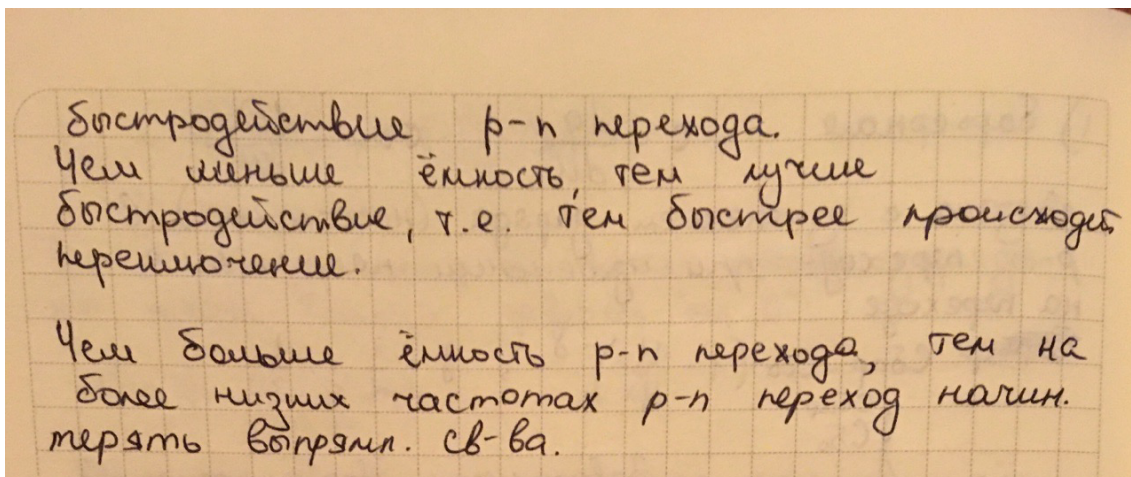 быстродействие p-n перехода.
Чем меньше ёмкость, тем лучше
быстродействие, т.е. тем быстрее происходит
переключение.
Чем больше ёмкость p-n перехода, тем на
более низших частотах p-n переход начин.
терять выпрямл. св-ва.